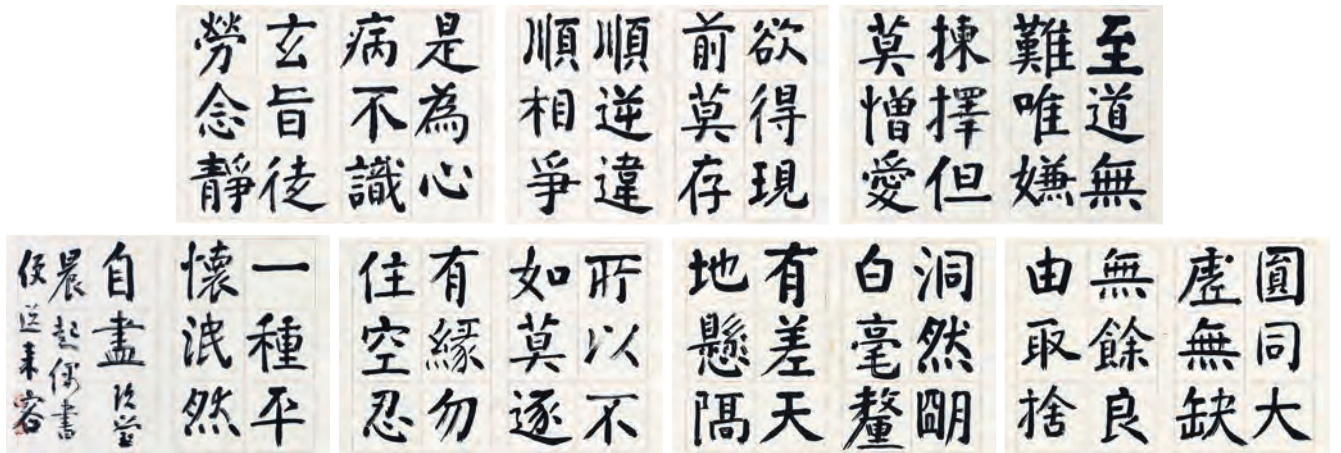 至道無
難唯嫌
揀擇但
莫憎愛
欲得現
前莫存
順逆違
順相爭
是為心
病不識
玄旨徒
勞念靜
圓同大
虛無缺
無餘良
由取捨
洞然朙
白毫釐
有差天
地懸隔
所以不
如莫逐
有緣勿
住空忍
一種平
懷泯然
自盡
晨起偶書
便送来